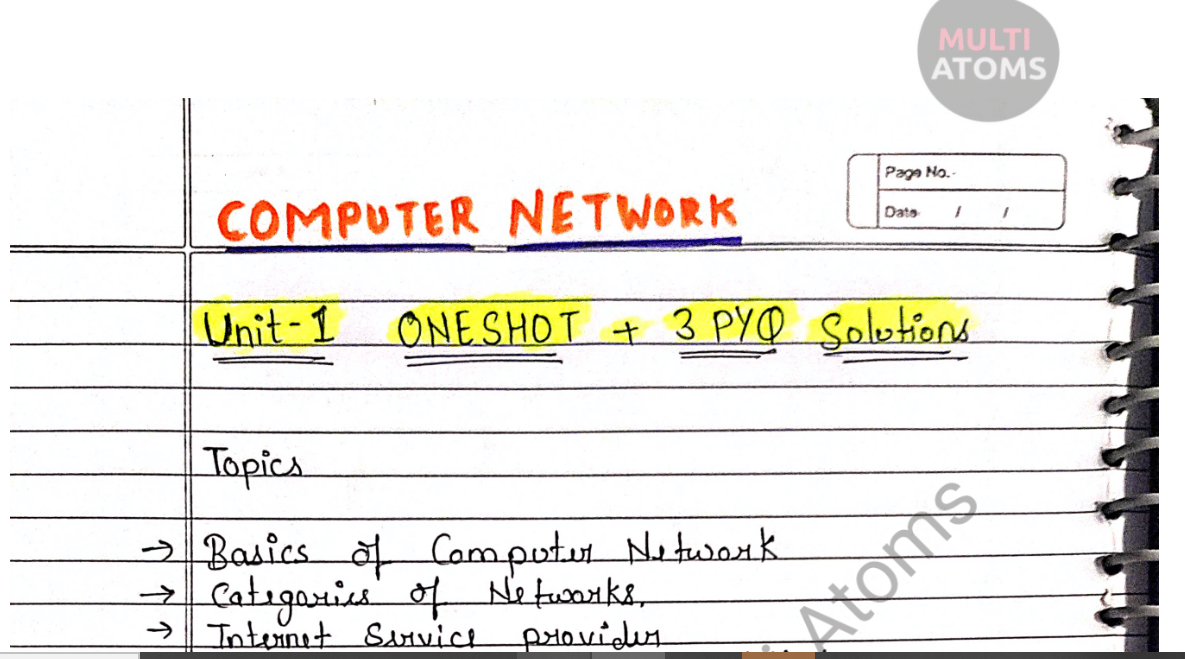 MULTI
ATOMS
Page No.-
COMPUTER NETWORK
Date / /
Unit-1 ONESHOT + 3 PYQ Solutions
Topics
→ Basics of Computer Network
→ Categories of Networks.
→ Internet Service provider
Atoms